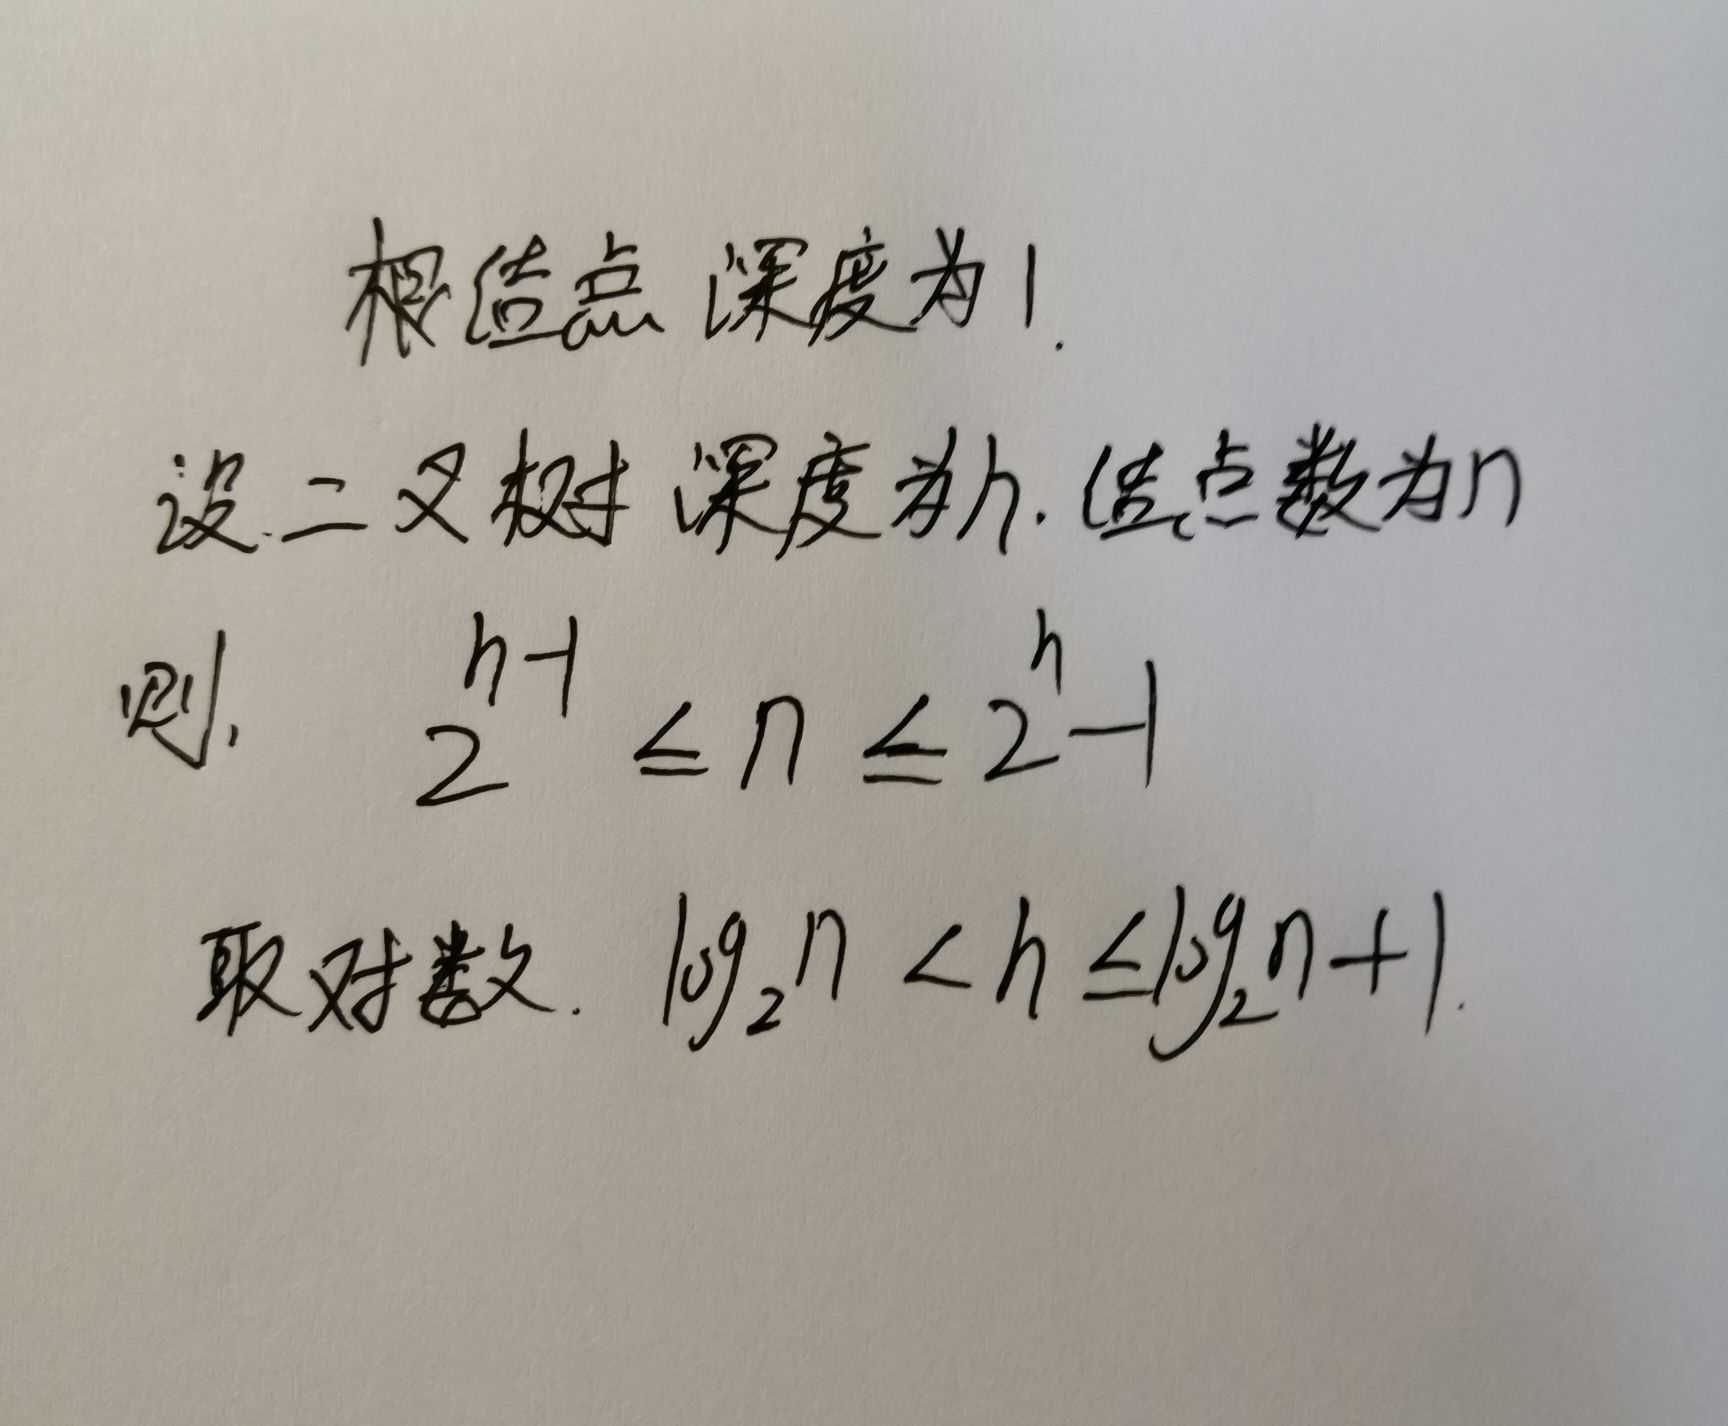 根结点深度为1.
设二叉树深度为h.结点数为n
则, 2^{h-1} ≤ n ≤ 2^h-1
取对数. log₂n < h ≤ log₂n+1.